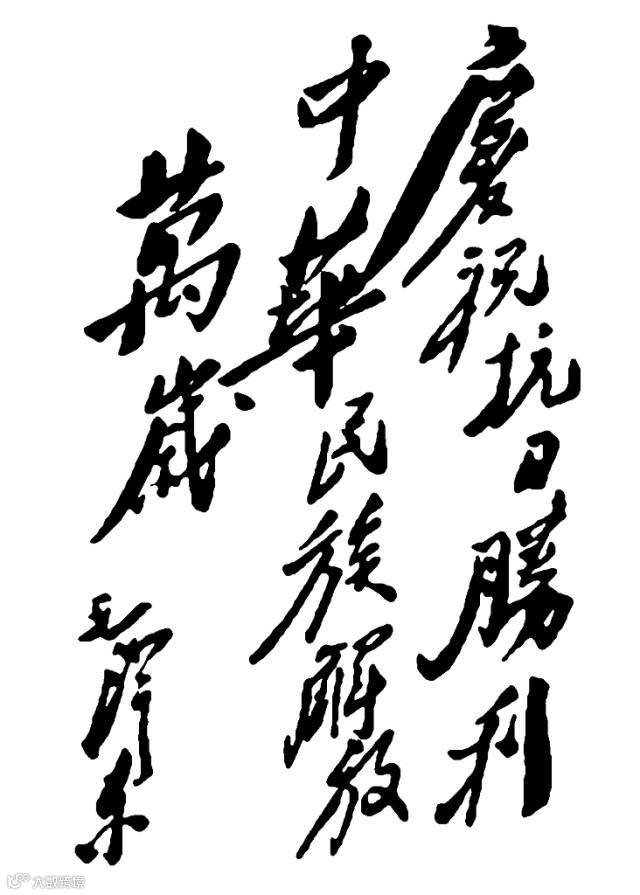 慶祝抗日勝利
中華民族解放
萬歲
毛澤东
大数跨境